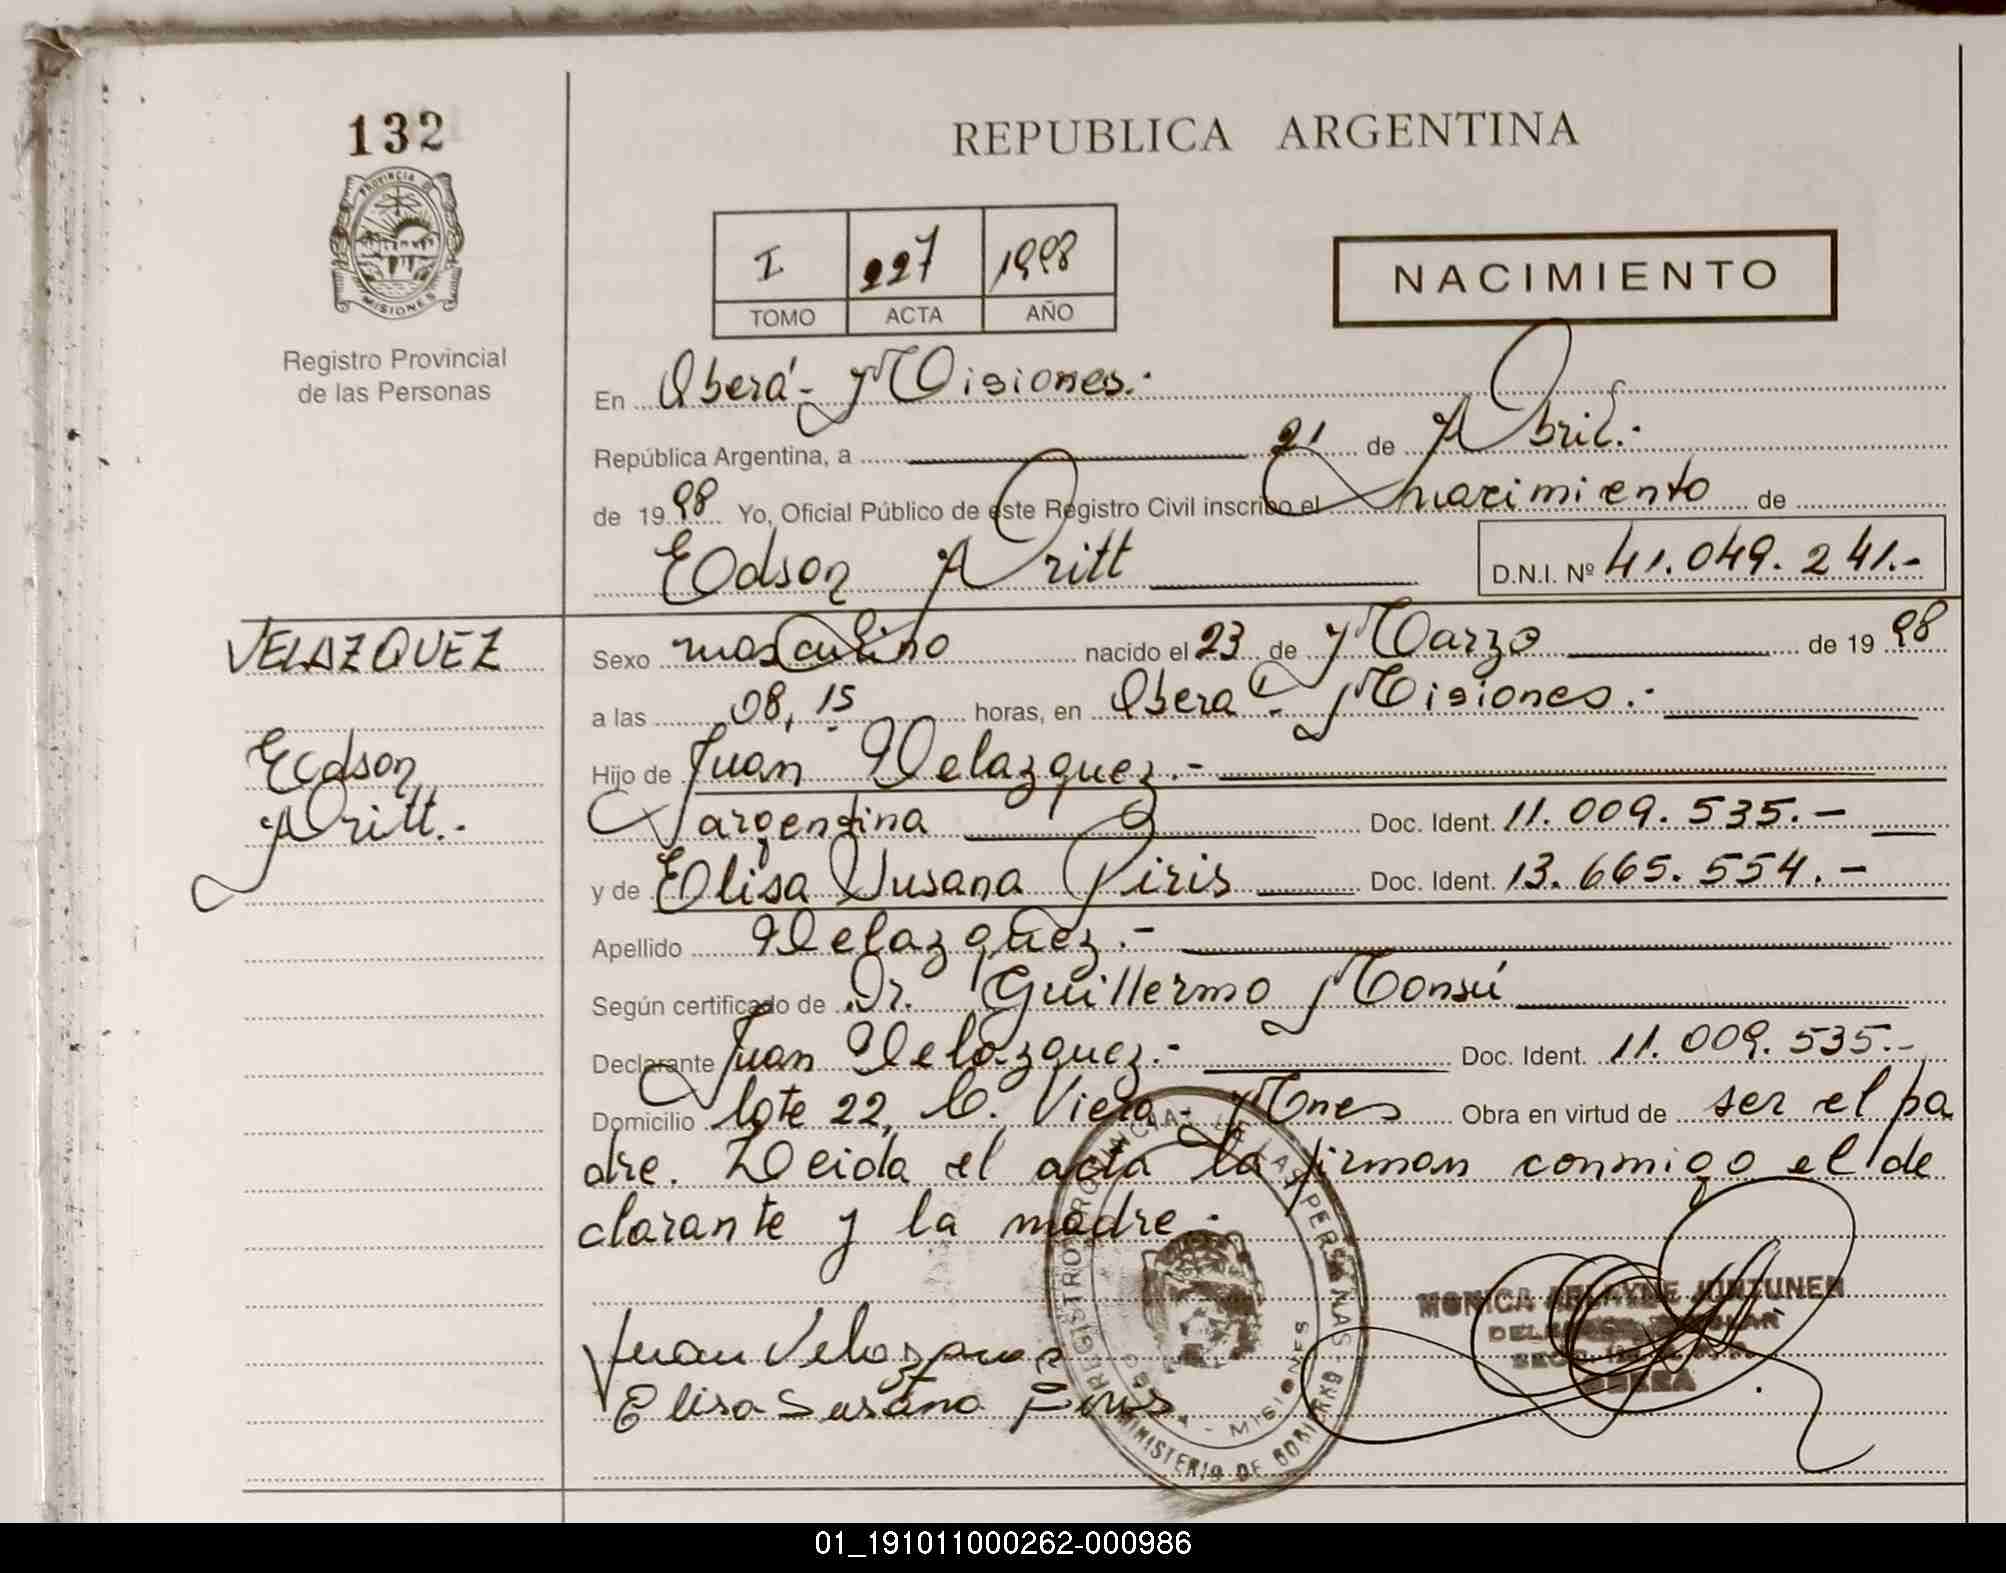 132
PROVINCIA DE
MISIONES
Registro Provincial
de las Personas
REPUBLICA ARGENTINA
I 227 1998
TOMO ACTA AÑO
NACIMIENTO
En Oberá - Misiones.-
República Argentina, a 21 de Abril.-
de 1998 Yo, Oficial Público de este Registro Civil inscribo el nacimiento de
Edson Aritt
D.N.I. Nº 41.049.241.-
VELAZQUEZ
Edson
Aritt.-
Sexo masculino nacido el 23 de Marzo de 1998
a las 08,15 horas, en Oberá - Misiones.-
Hijo de Juan Velazquez.-
argentina Doc. Ident. 11.009.535.-
y de Elisa Susana Piris Doc. Ident. 13.665.554.-
Apellido Velazquez.-
Según certificado de Dr. Guillermo Monsú
Declarante Juan Velazquez.- Doc. Ident. 11.009.535.-
Domicilio lote 22, C. Viera - Mnes Obra en virtud de ser el pa
dre. Leida el acta la firman conmigo el de
clarante y la madre.
Juan Velazquez
Elisa Susana Piris
REGISTRO PROVINCIAL DE LAS PERSONAS
MISIONES
MINISTERIO DE GOBIERNO
MONICA JUNTUNEN
OBERA
01_191011000262-000986